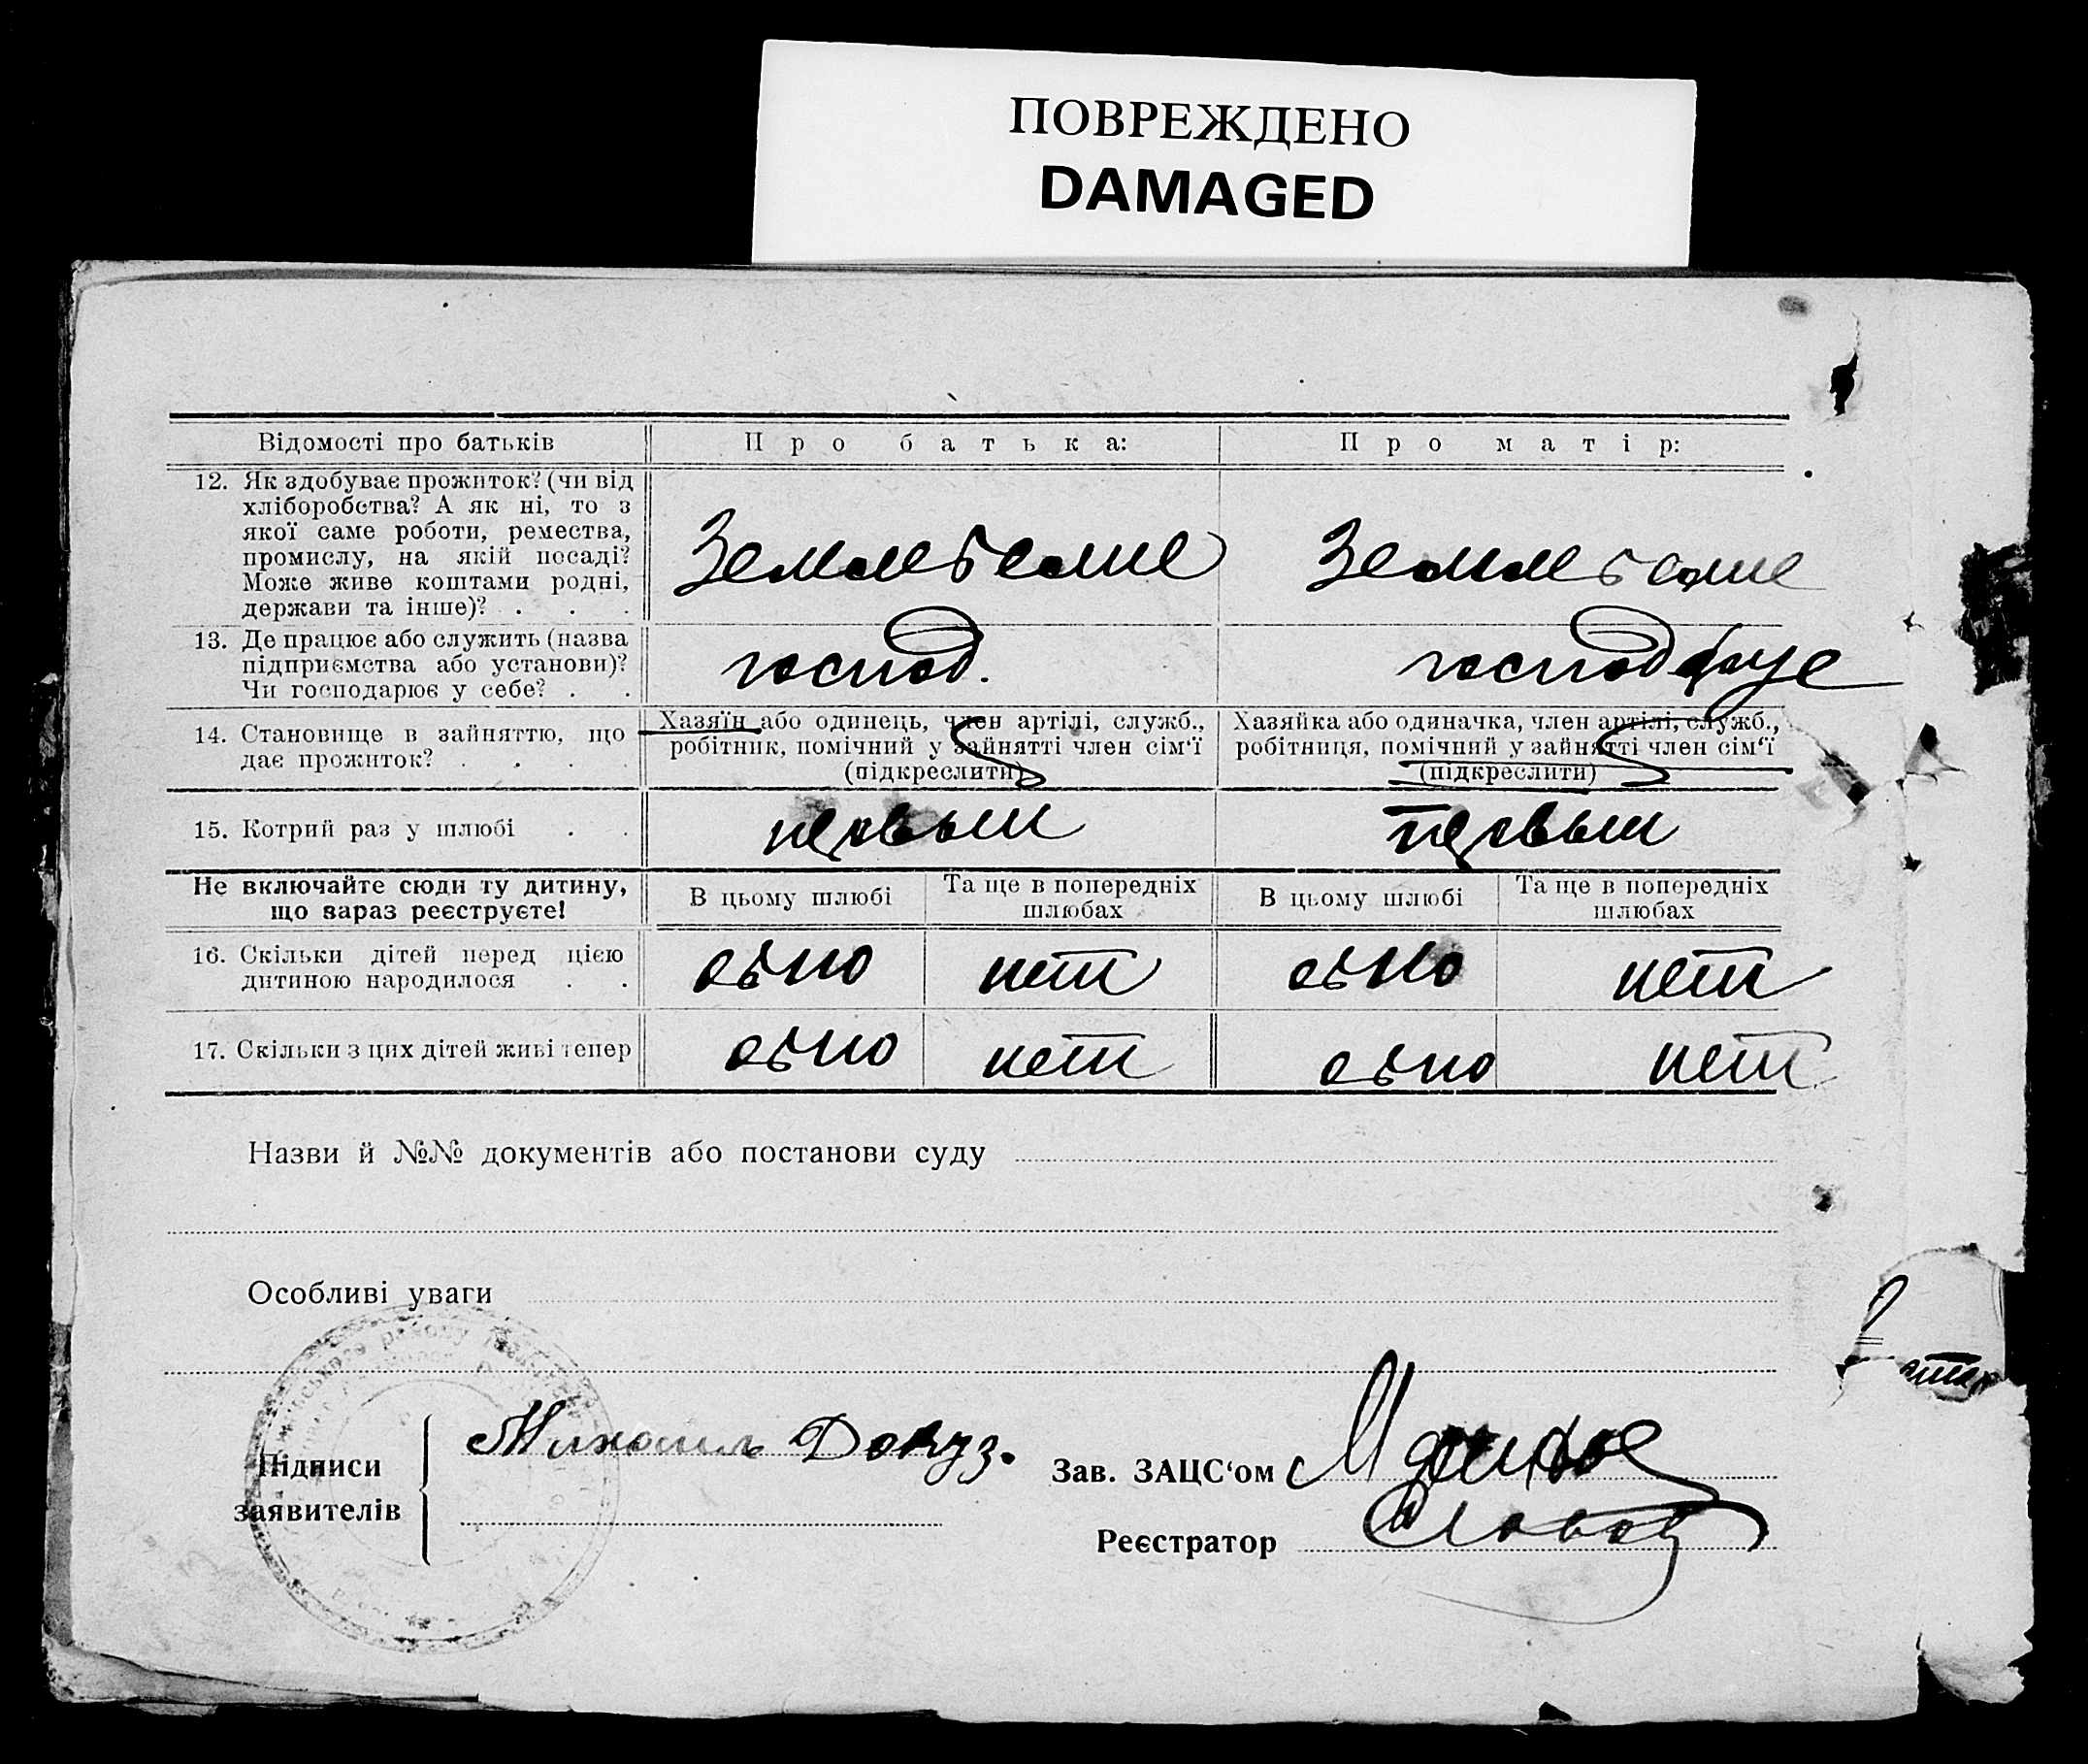 ПОВРЕЖДЕНО
DAMAGED
Відомості про батьків
Про батька:
Про матір:
12. Як здобуває прожиток? (чи від
хліборобства? А як ні, то з
якої саме роботи, ремества,
промислу, на якій посаді?
Може живе коштами родні,
держави та інше)? . . .
Земледелие
Земледелие
13. Де працює або служить (назва
підприємства або установи)?
Чи господарює у себе? . .
господ.
14. Становище в зайняттю, що
дає прожиток? . . . .
Хазяїн або одинець, член артілі, служб.,
робітник, помічний у зайнятті член сім'ї
(підкреслити)
Хазяйка або одиначка, член артілі, служб.,
робітниця, помічний у зайнятті член сім'ї
(підкреслити)
15. Котрий раз у шлюбі . .
первый
первый
Не включайте сюди ту дитину,
що зараз реєструєте!
В цьому шлюбі
Та ще в попередніх
шлюбах
В цьому шлюбі
Та ще в попередніх
шлюбах
16. Скільки дітей перед цією
дитиною народилося . .
одно
нет
одно
нет
17. Скільки з цих дітей живі тепер
одно
нет
одно
нет
Назви й №№ документів або постанови суду
Особливі уваги
Підписи
заявителів
Михаил Докуз.
Зав. ЗАЦС'ом
Реєстратор